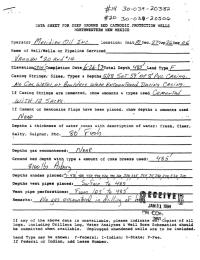 #14 30-039-20382
#20 30-039-20506
DATA SHEET FOR DEEP GROUND BED CATHODIC PROTECTION WELLS
NORTHWESTERN NEW MEXICO
Operator Meridian Oil Inc. Location: Unit Sec. Twp 26 Rng
Name of Well/Wells or Pipeline Serviced
#20 And #14
Elevation Completion Date Total Depth 485' Land Type F
Casing Strings, Sizes, Types & Depths 5/8 Set 59' of 8" PVC Casing.
No Gas, Water, or Boulders Were Encountered During Casing.
If Casing Strings are cemented, show amounts & types used Cemented
With 12 Sacks.
If Cement or Bentonite Plugs have been placed, show depths & amounts used
None
Depths & thickness of water zones with description of water: Fresh, Clear,
Salty, Sulphur, Etc. 80' Fresh
Depths gas encountered: None
Ground bed depth with type & amount of coke breeze used: 485'
Depths anodes placed:
Depths vent pipes placed: Surface To 485'
Vent pipe perforations: From 100' To 485'
Remarks: No gas encountered in drilling of
RECEIVED
JAN 31 1994
If any of the above data is unavailable, please indicate so. Copies of all
logs, including Drillers Log, Water Analyses & Well Bore Schematics should
be submitted when available. Unplugged abandoned wells are to be included.
Land Type may be shown: F-Federal; I-Indian; S-State; P-Fee.
If Federal or Indian, add Lease Number.